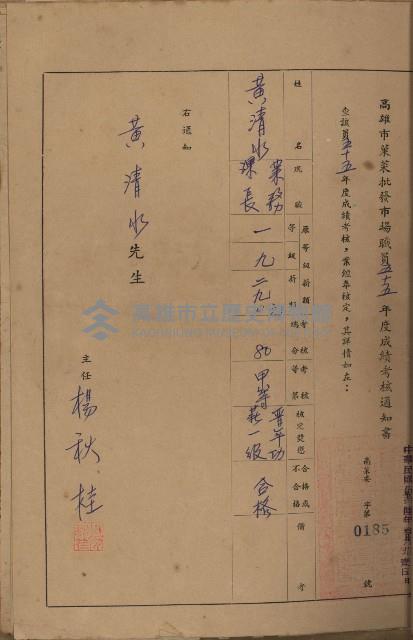 高雄市菓菜批發市場職員五十五年度成績考核通知書
高菓委 字第 0185 號
查該員五十五年度成績考核，業經奉核定，其詳情如左：
姓名
現職
原等級薪額
等級 薪額
考核總分
考核等第
核定獎懲
合格或不合格
備考
黃清水
業務課長
一 九 二九
80
甲等
晉年功薪一級
合格
右通知
黃清水先生
主任 楊秋桂
高雄市立歷史博物館
KAOHSIUNG MUSEUM OF HISTORY